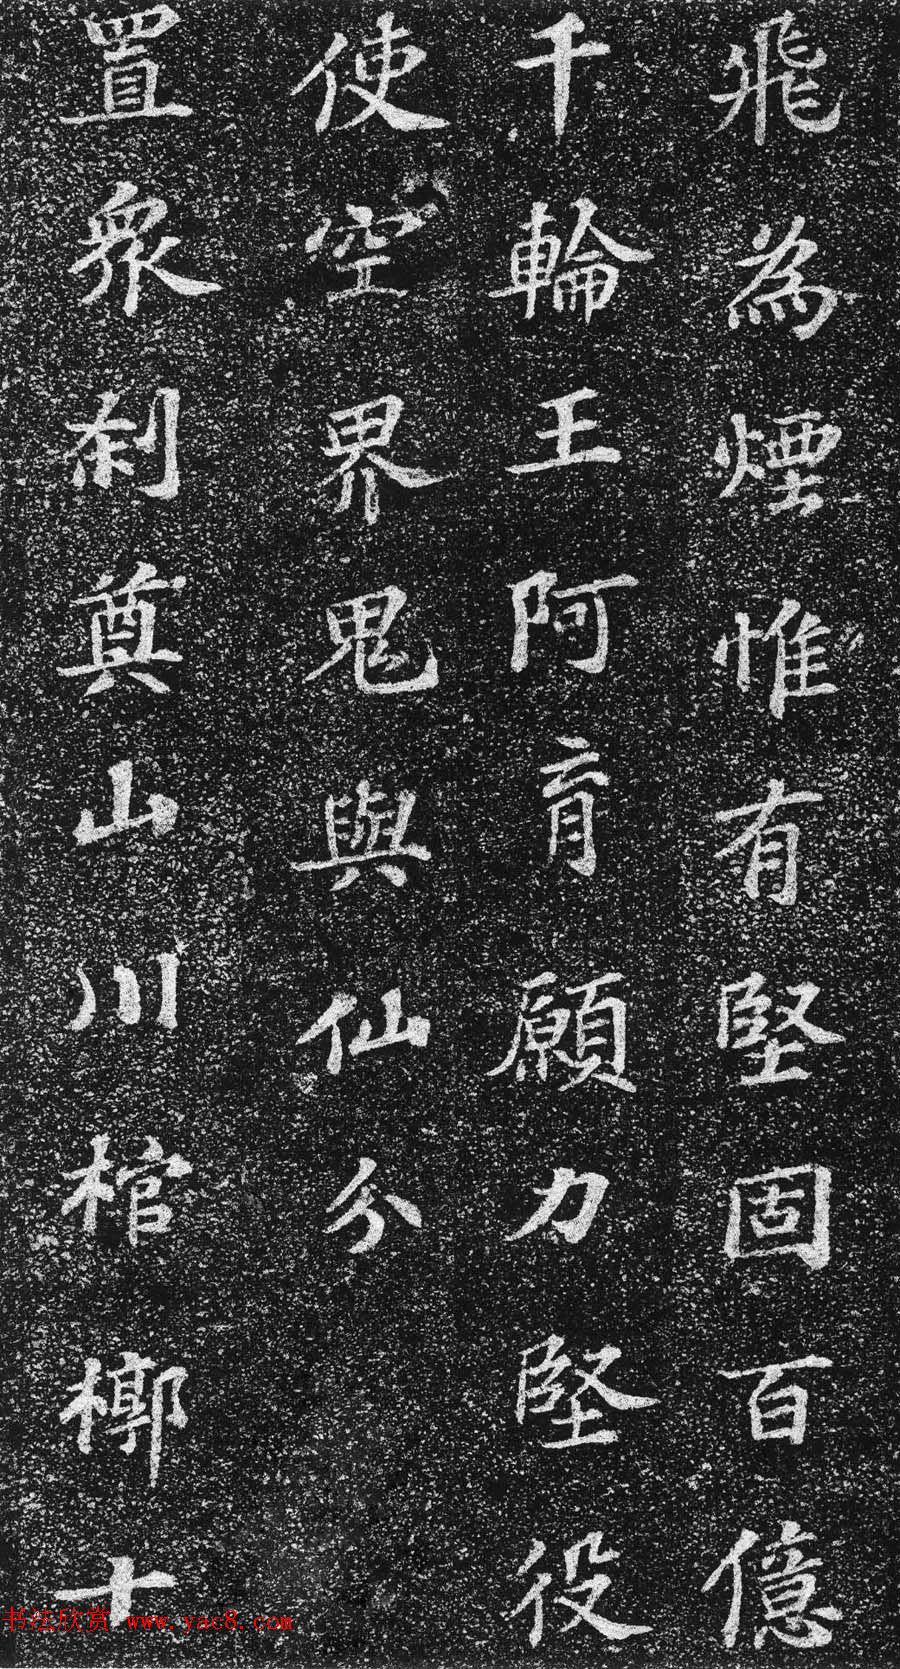 飛為煙惟有堅固百億
千輪王阿育願力堅役
使空界鬼與仙分
置衆刹奠山川棺槨十
书法欣赏 www.yac8.com